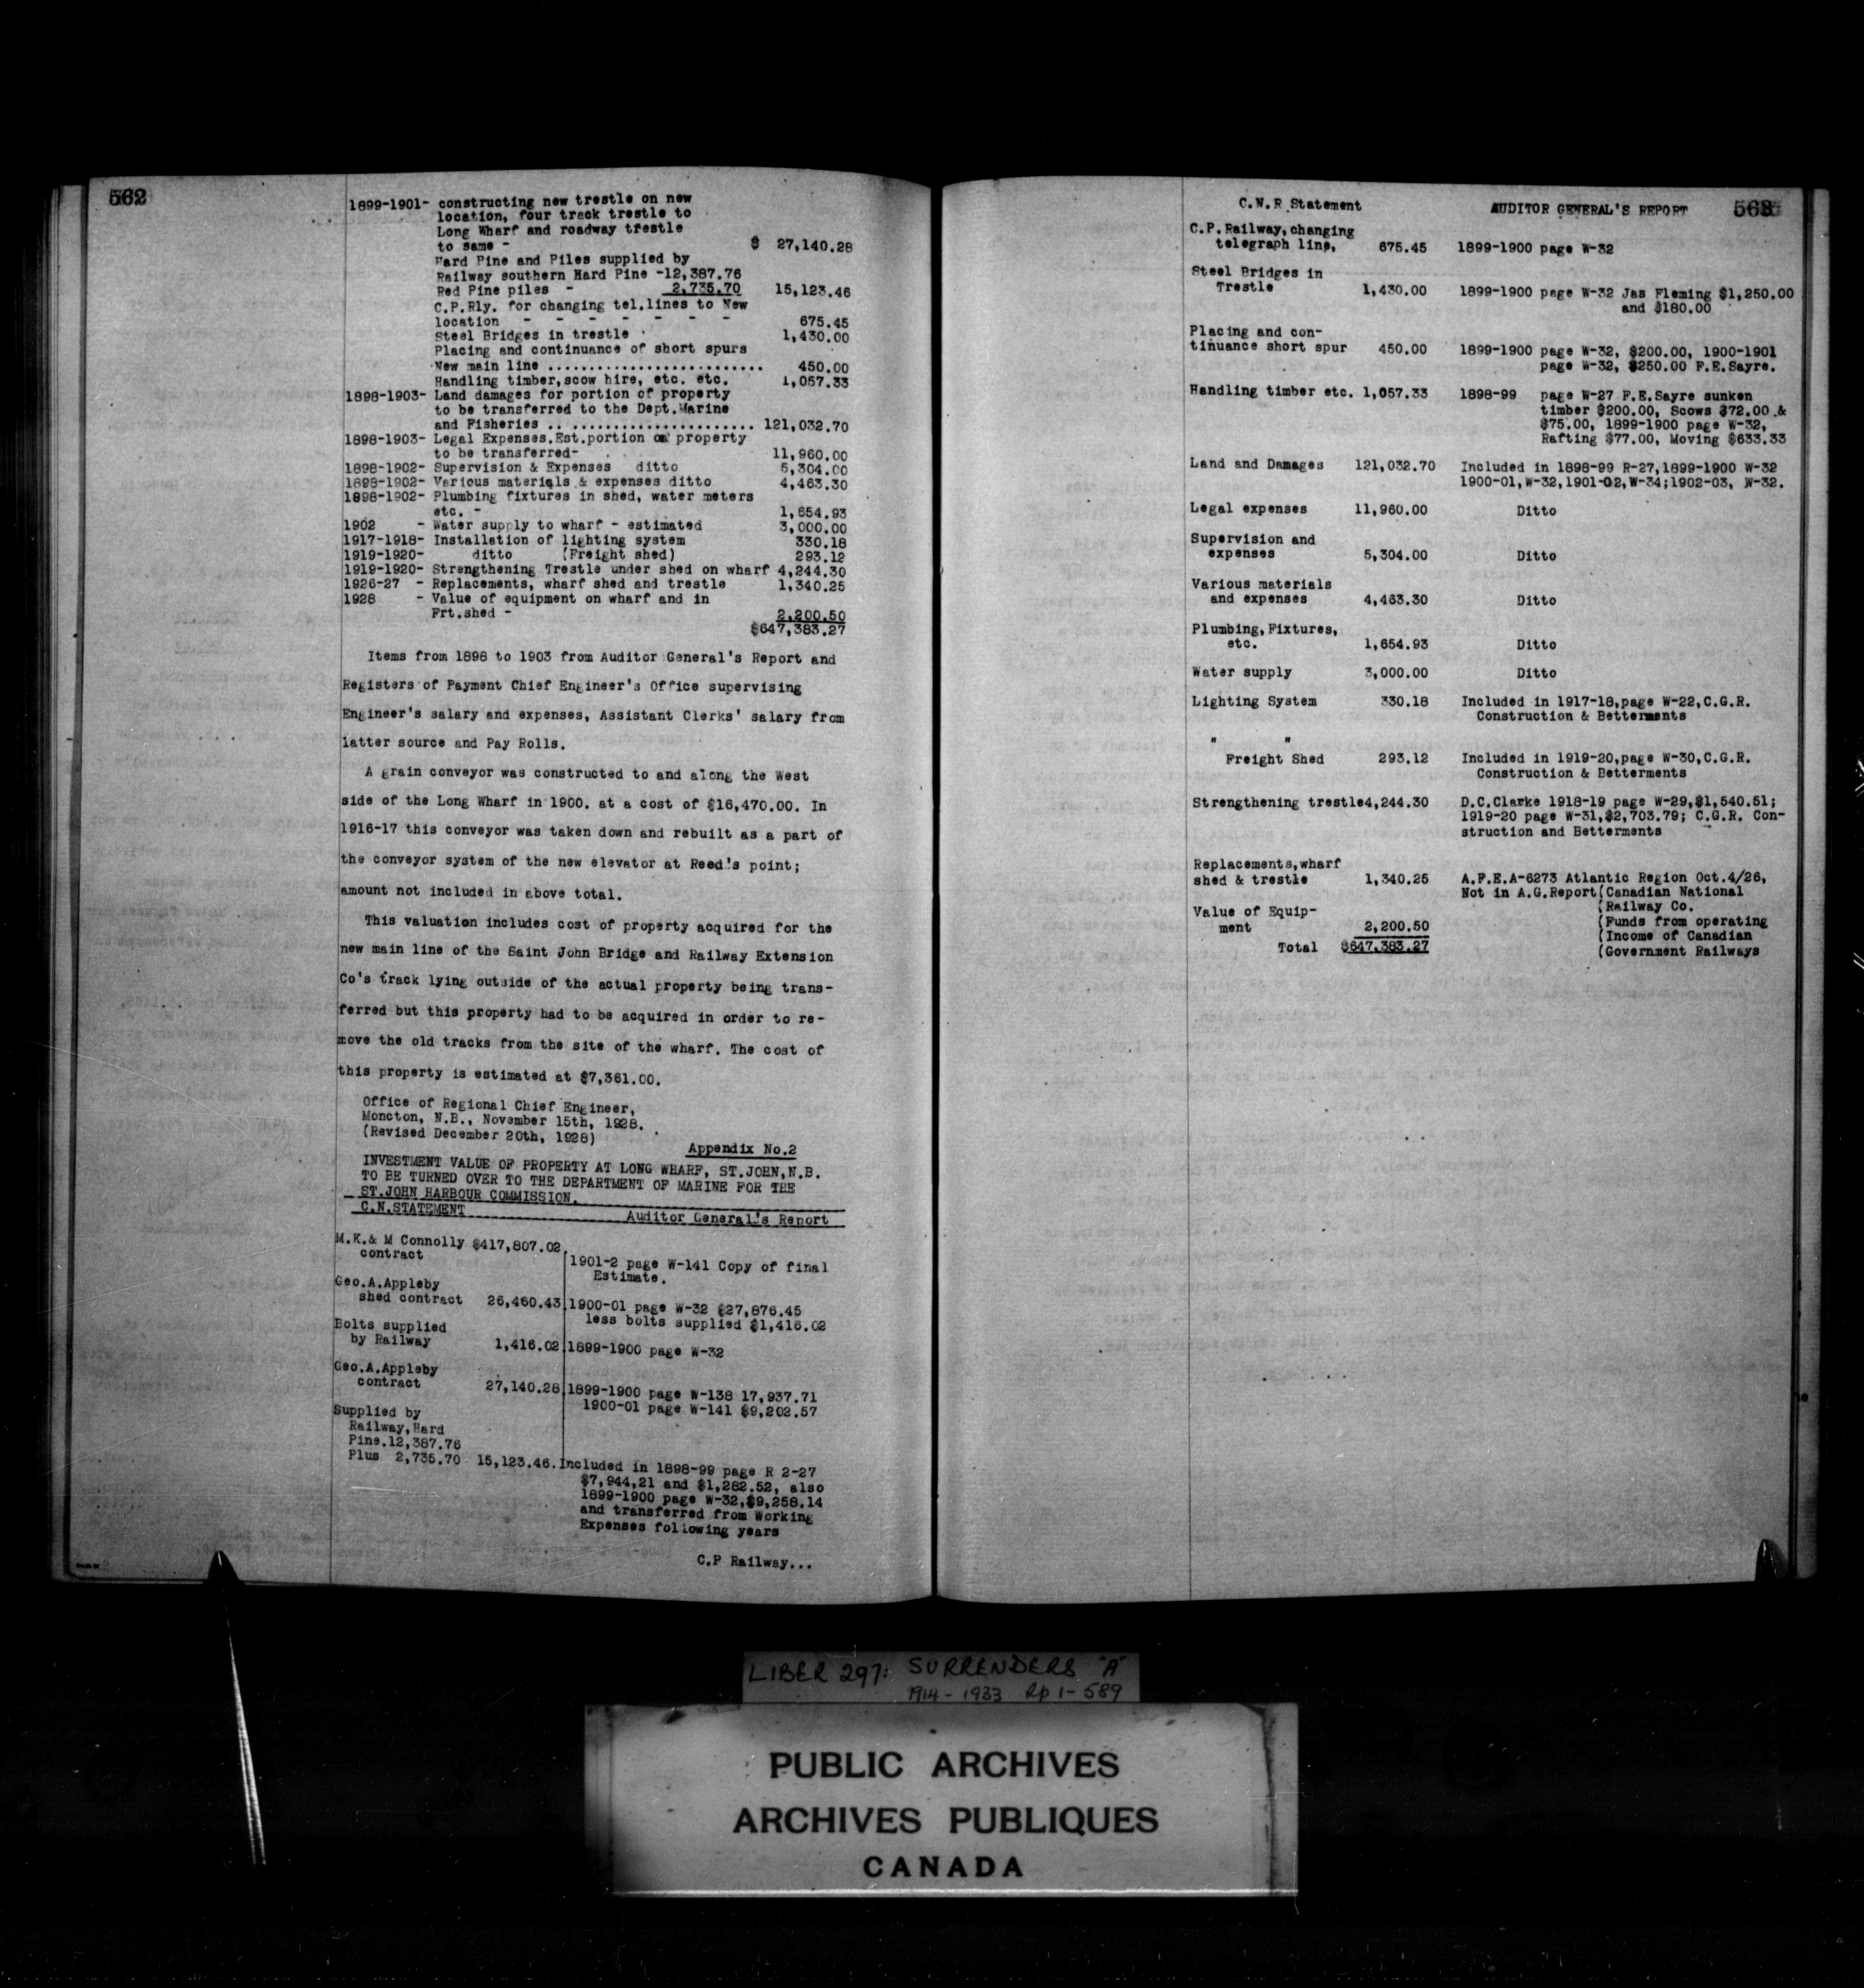 562
1899-1901- constructing new trestle on new
location, four track trestle to
Long Wharf and roadway trestle
to same - $ 27,140.28
Hard Pine and Piles supplied by
Railway southern Hard Pine -12,387.76
Red Pine piles - 2,735.70 15,123.46
C.P.Rly. for changing tel.lines to New
location - - - - - - - 675.45
Steel Bridges in trestle 1,430.00
Placing and continuance of short spurs
New main line .......................... 450.00
Handling timber,scow hire, etc. etc. 1,057.33
1898-1903- Land damages for portion of property
to be transferred to the Dept.Marine
and Fisheries .. ...................... 121,032.70
1898-1903- Legal Expenses.Est.portion on property
to be transferred- 11,960.00
1898-1902- Supervision & Expenses ditto 5,304.00
1898-1902- Various materials & expenses ditto 4,463.30
1898-1902- Plumbing fixtures in shed, water meters
etc. - 1,654.93
1902 - Water supply to wharf - estimated 3,000.00
1917-1918- Installation of lighting system 330.18
1919-1920- ditto (Freight shed) 293.12
1919-1920- Strengthening Trestle under shed on wharf 4,244.30
1926-27 - Replacements, wharf shed and trestle 1,340.25
1928 - Value of equipment on wharf and in
Frt.shed - 2,200.50
$647,383.27
Items from 1898 to 1903 from Auditor General's Report and
Registers of Payment Chief Engineer's Office supervising
Engineer's salary and expenses, Assistant Clerks' salary from
latter source and Pay Rolls.
A grain conveyor was constructed to and along the West
side of the Long Wharf in 1900. at a cost of $16,470.00. In
1916-17 this conveyor was taken down and rebuilt as a part of
the conveyor system of the new elevator at Reed's point;
amount not included in above total.
This valuation includes cost of property acquired for the
new main line of the Saint John Bridge and Railway Extension
Co's track lying outside of the actual property being trans-
ferred but this property had to be acquired in order to re-
move the old tracks from the site of the wharf. The cost of
this property is estimated at $7,361.00.
Office of Regional Chief Engineer,
Moncton, N.B., November 15th, 1928.
(Revised December 20th, 1928)
Appendix No.2
INVESTMENT VALUE OF PROPERTY AT LONG WHARF, ST.JOHN,N.B.
TO BE TURNED OVER TO THE DEPARTMENT OF MARINE FOR THE
ST.JOHN HARBOUR COMMISSION.
C.N.STATEMENT Auditor General's Report
M.K.& M Connolly $417,807.02
contract
1901-2 page W-141 Copy of final
Estimate.
Geo.A.Appleby
shed contract 26,460.43 1900-01 page W-32 $27,876.45
less bolts supplied $1,416.02
Bolts supplied
by Railway 1,416.02 1899-1900 page W-32
Geo.A.Appleby
contract 27,140.28 1899-1900 page W-138 17,937.71
1900-01 page W-141 $9,202.57
Supplied by
Railway,Hard
Pine.12,387.76
Plus 2,735.70 15,123.46.Included in 1898-99 page R 2-27
$7,944,21 and $1,282.52, also
1899-1900 page W-32,$9,258.14
and transferred from Working
Expenses following years
C.P Railway...
C.N.R Statement AUDITOR GENERAL'S REPORT 563
C.P.Railway,changing
telegraph line, 675.45 1899-1900 page W-32
Steel Bridges in
Trestle 1,430.00 1899-1900 page W-32 Jas Fleming $1,250.00
and $180.00
Placing and con-
tinuance short spur 450.00 1899-1900 page W-32, $200.00, 1900-1901
page W-32, $250.00 F.E.Sayre.
Handling timber etc. 1,057.33 1898-99 page W-27 F.E.Sayre sunken
timber $200.00, Scows $72.00 &
$75.00, 1899-1900 page W-32,
Rafting $77.00, Moving $633.33
Land and Damages 121,032.70 Included in 1898-99 R-27,1899-1900 W-32
1900-01,W-32,1901-02,W-34;1902-03, W-32.
Legal expenses 11,960.00 Ditto
Supervision and
expenses 5,304.00 Ditto
Various materials
and expenses 4,463.30 Ditto
Plumbing,Fixtures,
etc. 1,654.93 Ditto
Water supply 3,000.00 Ditto
Lighting System 330.18 Included in 1917-18,page W-22,C.G.R.
Construction & Betterments
" "
Freight Shed 293.12 Included in 1919-20,page W-30,C.G.R.
Construction & Betterments
Strengthening trestle4,244.30 D.C.Clarke 1918-19 page W-29,$1,540.51;
1919-20 page W-31,$2,703.79; C.G.R. Con-
struction and Betterments
Replacements,wharf
shed & trestle 1,340.25 A.F.E.A-6273 Atlantic Region Oct.4/26,
Not in A.G.Report(Canadian National
(Railway Co.
Value of Equip-
ment 2,200.50 (Funds from operating
(Income of Canadian
Total $647,383.27 (Government Railways
LIBER 297: SURRENDERS "A"
1914-1933 Rp 1-589
PUBLIC ARCHIVES
ARCHIVES PUBLIQUES
CANADA